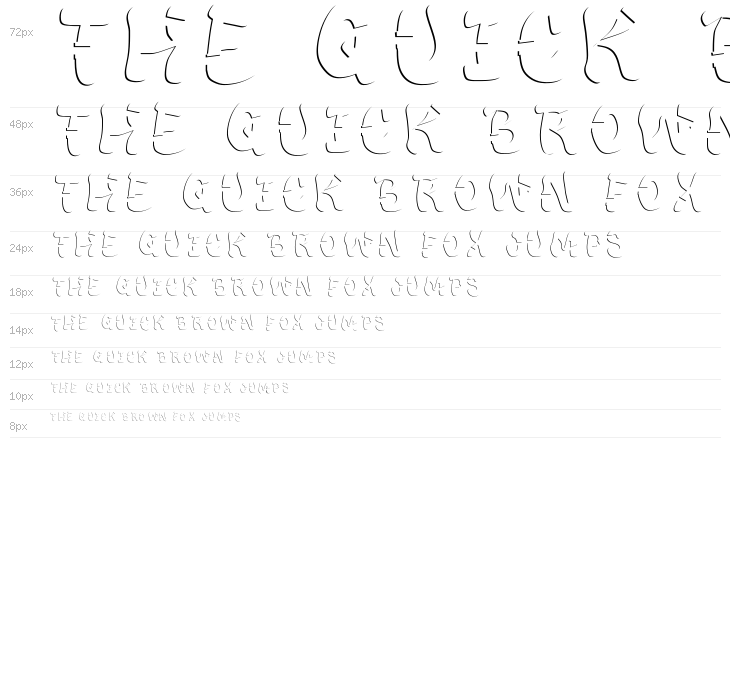 72px THE QUICK B
48px THE QUICK BROWN
36px THE QUICK BROWN FOX
24px THE QUICK BROWN FOX JUMPS
18px THE QUICK BROWN FOX JUMPS
14px THE QUICK BROWN FOX JUMPS
12px THE QUICK BROWN FOX JUMPS
10px THE QUICK BROWN FOX JUMPS
8px THE QUICK BROWN FOX JUMPS